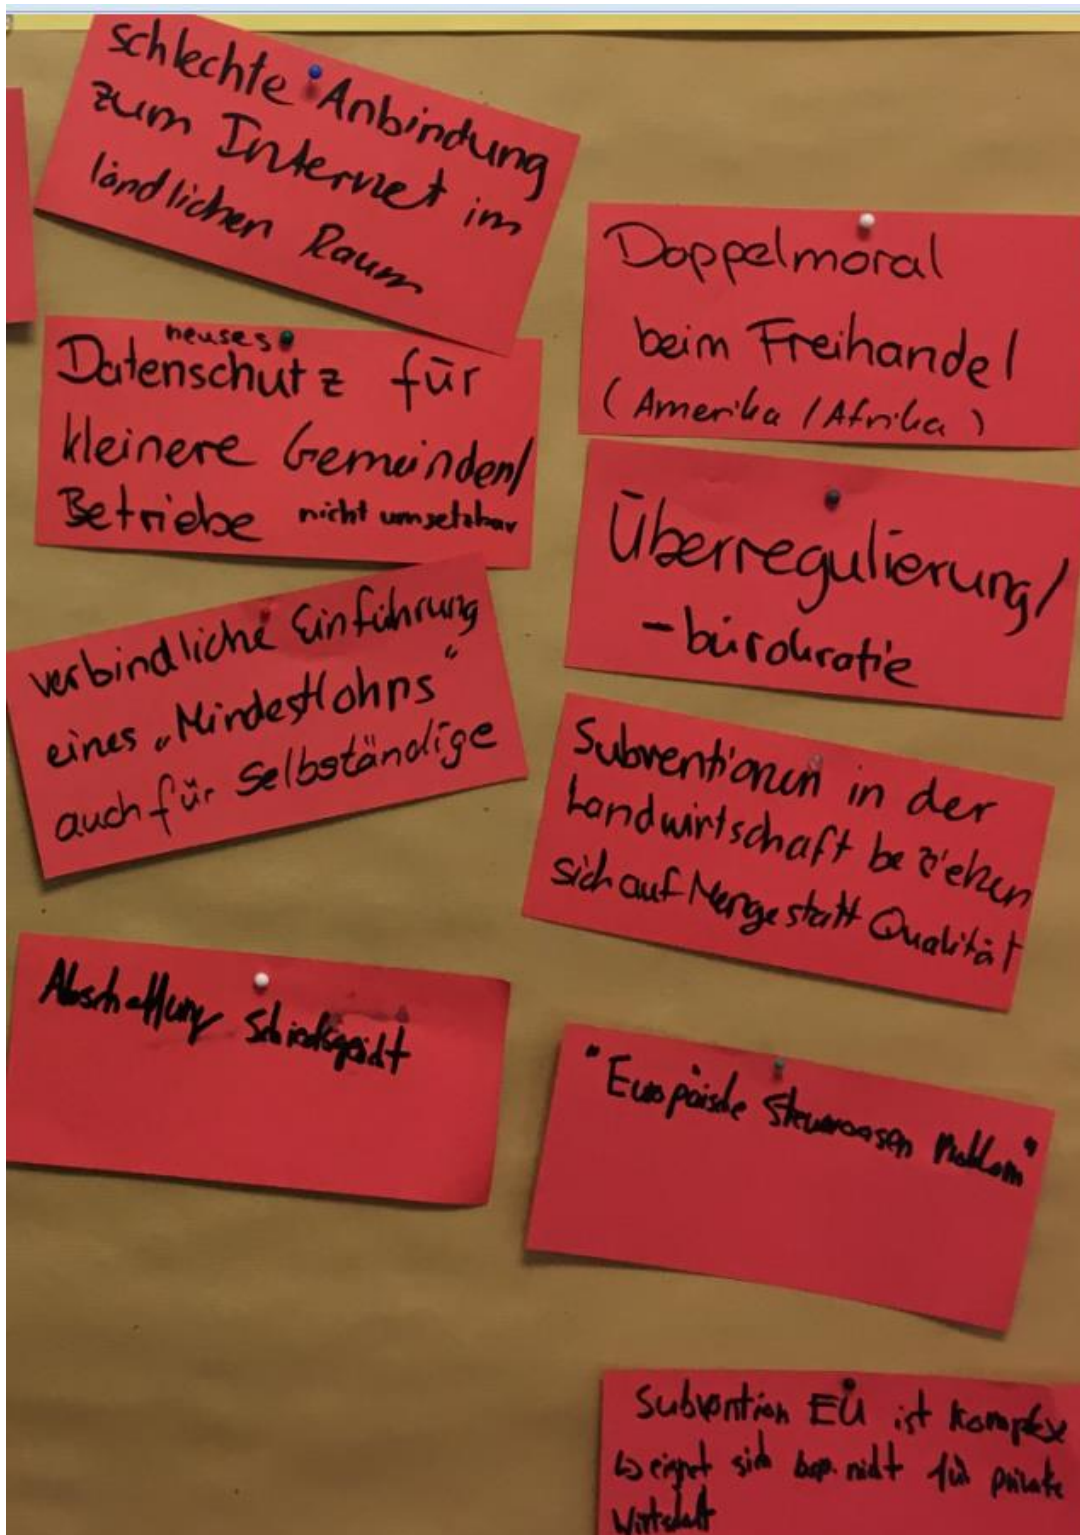 schlechte Anbindung
zum Internet im
ländlichen Raum
neuses
Datenschutz für
kleinere Gemeinden/
Betriebe nicht umsetzbar
verbindliche Einführung
eines „Mindestlohns"
auch für Selbständige
Abschaffung Schiedsgericht
Doppelmoral
beim Freihandel
(Amerika / Afrika)
Überregulierung/
-bürokratie
Subventionen in der
Landwirtschaft beziehen
sich auf Menge statt Qualität
"Europäische Steueroasen Problem"
Subvention EU ist komplex
↳ eignet sich bsp. nicht für private
Wirtschaft